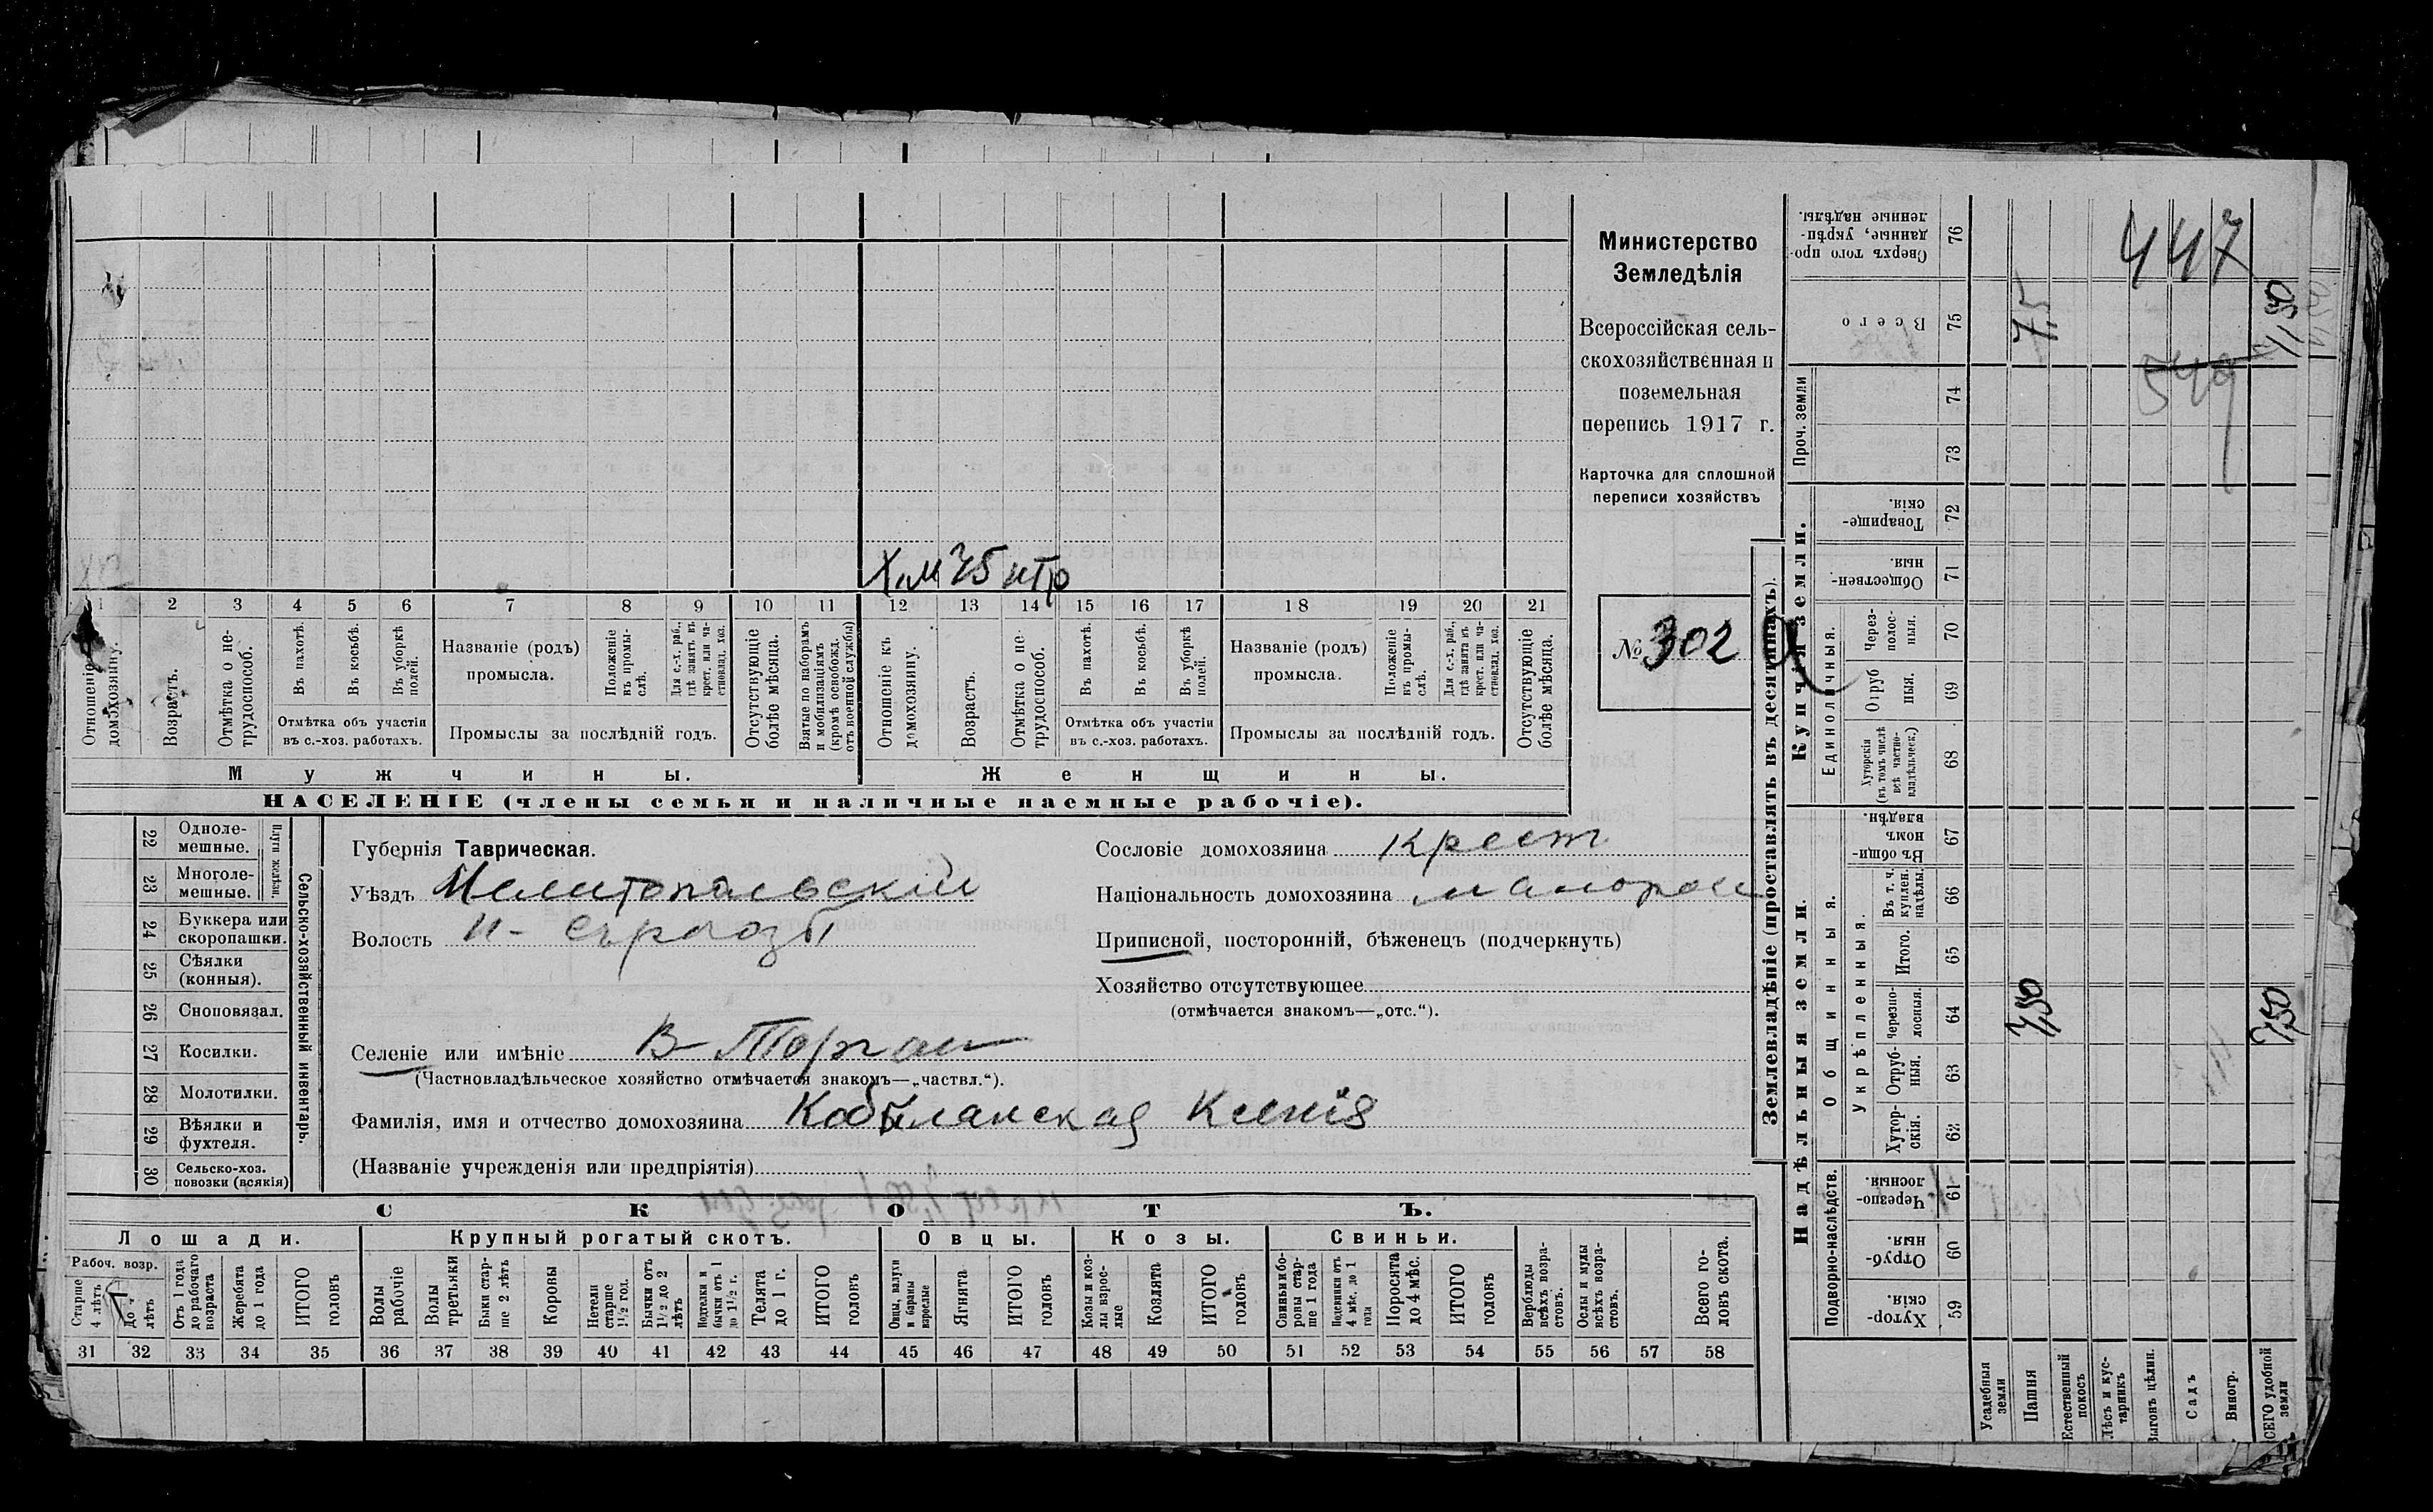 Министерство
Земледѣлія
Всероссійская сель-
скохозяйственная и
поземельная
перепись 1917 г.
Карточка для сплошной
переписи хозяйствъ
№ 302
Х.М 75
1 2 3 4 5 6 7 8 9 10 11 12 13 14 15 16 17 18 19 20 21
Отношеніе къ домохозяину.
Возрастъ.
Отмѣтка о не-трудоспособ.
Въ пахотѣ.
Въ косьбѣ.
Въ уборкѣ полей.
Отмѣтка объ участіи въ с.-хоз. работахъ.
Названіе (родъ) промысла.
Положеніе въ промы-слѣ.
Для с.-х. раб., гдѣ занятъ въ крест. или ча-стновлад. хоз.
Промыслы за послѣдній годъ.
Отсутствующіе болѣе мѣсяца.
Взятые по наборамъ и мобилизаціямъ (кромѣ освобожд. отъ военной службы)
Отношеніе къ домохозяину.
Возрастъ.
Отмѣтка о не-трудоспособ.
Въ пахотѣ.
Въ косьбѣ.
Въ уборкѣ полей.
Отмѣтка объ участіи въ с.-хоз. работахъ.
Названіе (родъ) промысла.
Положеніе въ промы-слѣ.
Для с.-х. раб., гдѣ занята въ крест. или ча-стновлад. хоз.
Промыслы за послѣдній годъ.
Отсутствующіе болѣе мѣсяца.
Мужчины.
Женщины.
НАСЕЛЕНІЕ (члены семьи и наличные наемные рабочіе).
Сельско-хозяйственный инвентарь.
Плуги желѣзн.
22 Одноле-мешные.
23 Многоле-мешные.
24 Буккера или скоропашки.
25 Сѣялки (конныя).
26 Сноповязал.
27 Косилки.
28 Молотилки.
29 Вѣялки и фухтеля.
30 Сельско-хоз. повозки (всякія)
Губернія Таврическая.
Уѣздъ Мелитопольскій
Волость Н- Сѣрогозы
Селеніе или имѣніе В- Торгаи
(Частновладѣльческое хозяйство отмѣчается знакомъ—„частвл.“).
Фамилія, имя и отчество домохозяина Кобыланская Ксенія
(Названіе учрежденія или предпріятія)
Сословіе домохозяина крест
Національность домохозяина малорос
Приписной, посторонній, бѣженецъ (подчеркнуть)
Хозяйство отсутствующее
(отмѣчается знакомъ—„отс.“).
СКОТЪ.
Лошади.
Крупный рогатый скотъ.
Овцы.
Козы.
Свиньи.
Рабоч. возр.
Старше 4 лѣтъ
До 4 лѣтъ
Отъ 1 года до рабочаго возраста
Жеребята до 1 года
ИТОГО головъ
Волы рабочіе
Волы третьяки
Быки стар-ше 2 лѣтъ
Коровы
Нетели старше 1½ год.
Бычки отъ 1½ до 2 лѣтъ
Подтелки и бычки отъ 1 до 1½ г.
Телята до 1 г.
ИТОГО головъ
Овцы, валухи и бараны взрослые
Ягнята
ИТОГО головъ
Козы и коз-лы взрос-лые
Козлята
ИТОГО головъ
Свиньи и бо-ровы стар-ше 1 года
Подсвинки отъ 4 мѣс. до 1 года
Поросята до 4 мѣс.
ИТОГО головъ
Верблюды всѣхъ возра-стовъ.
Ослы и мулы всѣхъ возра-стовъ.
Всего го-ловъ скота.
31 32 33 34 35 36 37 38 39 40 41 42 43 44 45 46 47 48 49 50 51 52 53 54 55 56 57 58
Землевладѣніе (проставлять въ десятинахъ).
Купчія земли.
Надѣльныя земли.
Сверхъ того про-данные, укрѣп-ленные надѣлы. 76
Всего 75
Проч. земли 74 73
Товарище-скія. 72
Обществен-ныя. 71
Единоличныя.
Через-полос-ныя. 70
Отруб-ныя. 69
Хуторскія (въ томъ числѣ всѣ частно-владѣльческ.) 68
Въ общин-номъ владѣн. 67
Общинныя.
Укрѣпленныя.
Въ т. ч. куплен. надѣлы. 66
Итого. 65
Черезпо-лосныя. 64
Отруб-ныя. 63
Хутор-скія. 62
Подворно-наслѣдств.
Черезпо-лосныя. 61
Отруб-ныя. 60
Хутор-скія. 59
Усадебныя земли
Пашня
Естественный покосъ
Лѣсъ и кус-тарникъ
Выгонъ цѣлин.
Садъ
Виногр.
ВСЕГО удобной земли
447
549
7,50
7,50